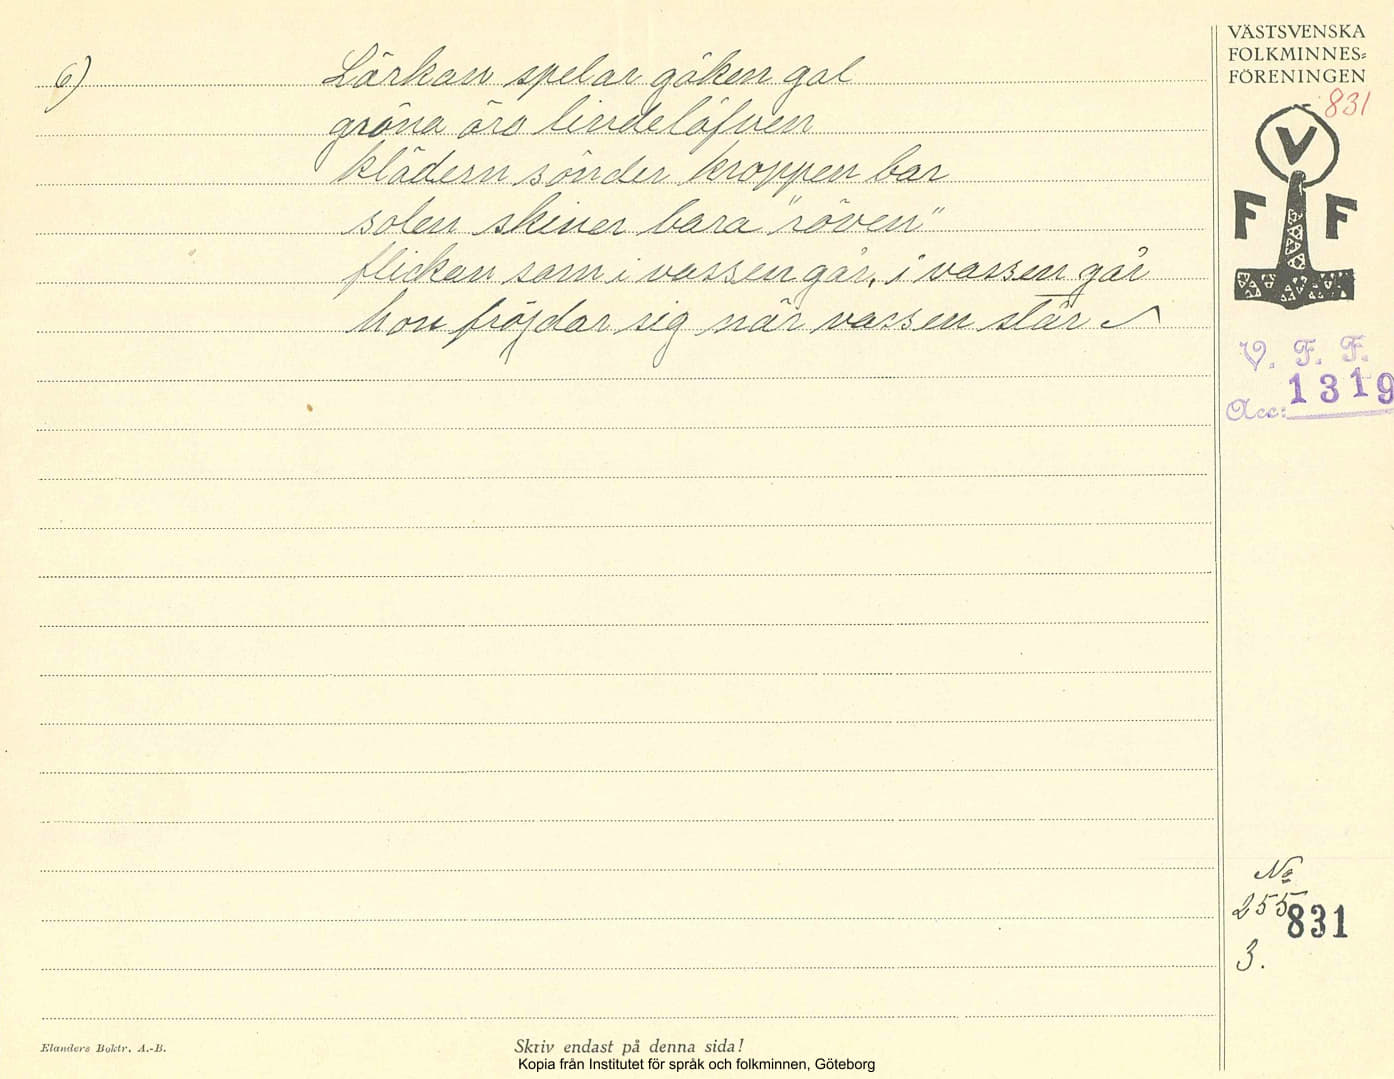 VÄSTSVENSKA
FOLKMINNES=
FÖRENINGEN
831
V
F F
V. F. F.
Acc: 1319
6) Lärkan spelar göken gal
gröna äro lindelöfven
klädern sönder kroppen bar
solen skiner bara "röven"
flickan som i vassen går, i vassen går
hon fröjdar sig när vassen står
No
255
831
3.
Elanders Boktr. A.-B.
Skriv endast på denna sida!
Kopia från Institutet för språk och folkminnen, Göteborg